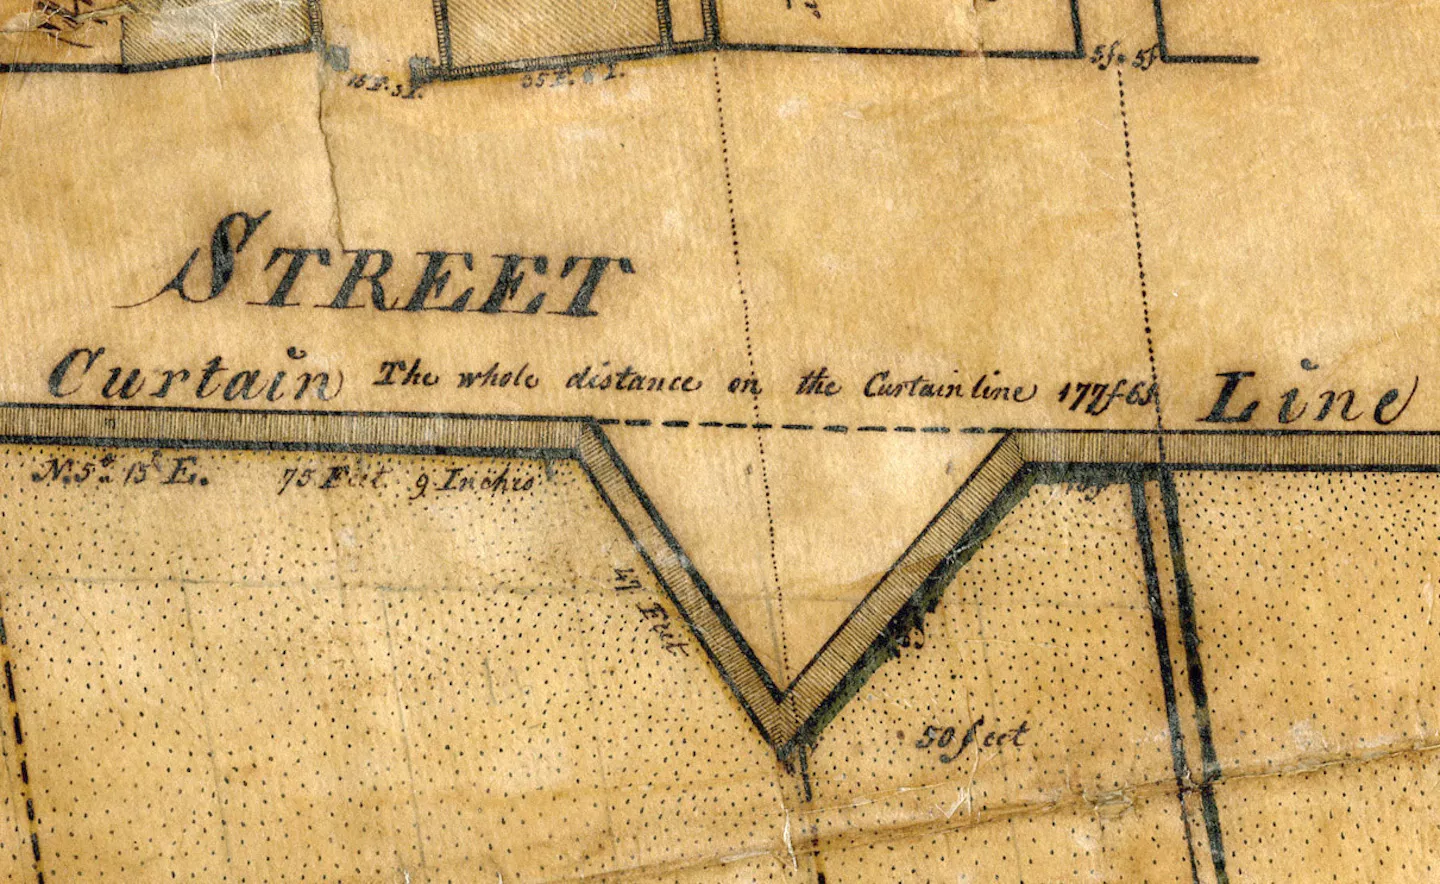 5f. 5f
STREET
Curtain The whole distance on the Curtain line 177f 6i Line
N. 5° 15' E. 75 Feet 9 Inches
47 Feet
50 feet